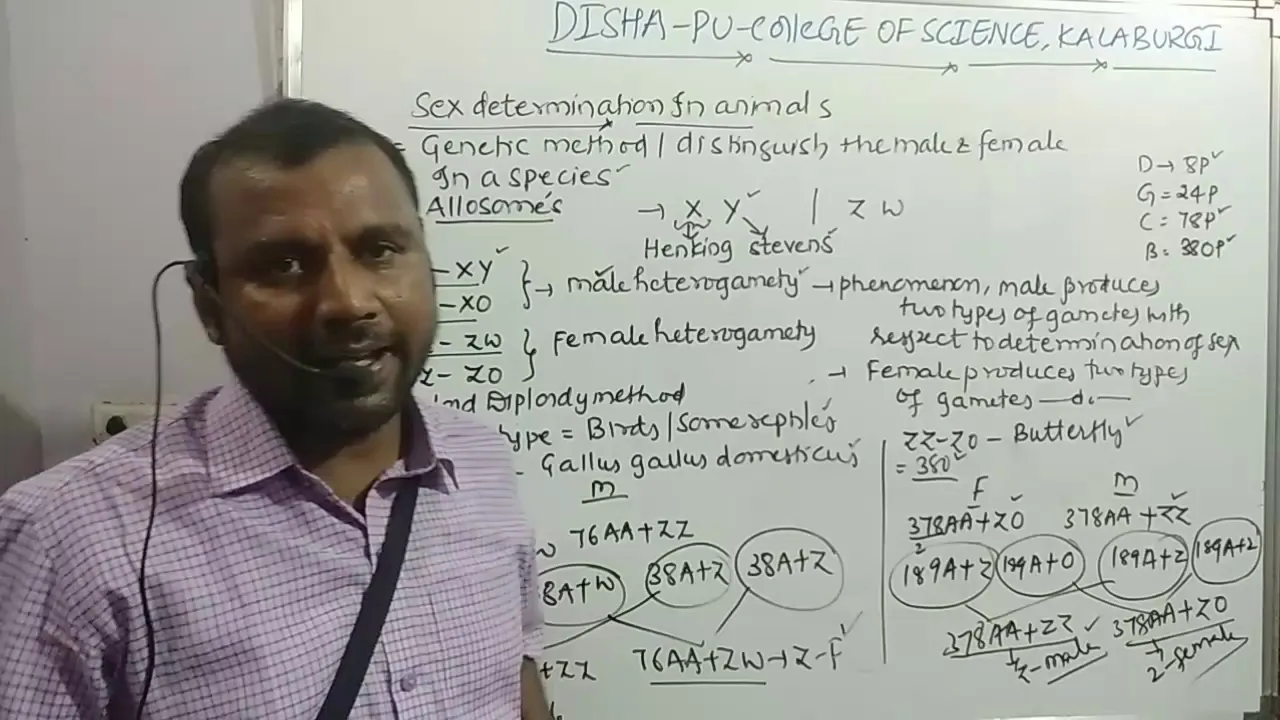 DISHA-PU-COllEGE OF SCIENCE, KALABURGI
Sex determination In animals
= Genetic method / distinguish the male & female
In a species
Allosome's → X Y | Z W
Henking stevens
D → 8P
G = 24P
C = 78P
B = 380P
- XY
- XO
} → male heterogamety → phenomenon, male produces
two types of gametes with
respect to determination of sex
- ZW
- ZO
} Female heterogamety
→ Female produces two types
of gametes — do —
Diploidy method
ype = Birds / Some reptiles
- Gallus gallus domesticus
m
76AA+ZZ
8A+W 38A+Z 38A+Z
+ZZ 76AA+ZW → Z-F
ZZ-ZO - Butterfly
= 380
F m
378AA+ZO 378AA+ZZ
2
189A+Z 189A+O 189A+Z 189A+Z
378AA+ZZ 378AA+ZO
1/2-male 1/2-female